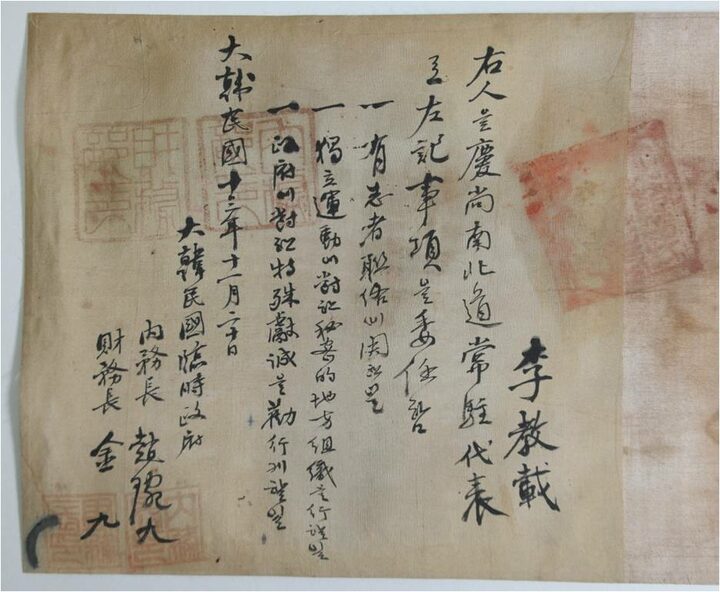 李敎載
右人을慶尙南北道常駐代表
로左記事項을委任함
一 有志者聯絡에關한일
一 獨立運動에對한秘密的地方組織을行할일
一 政府에對한特殊獻誠을勸行케할일
大韓民國十三年十一月二十日
大韓民國臨時政府
內務長 趙琬九
財務長 金九